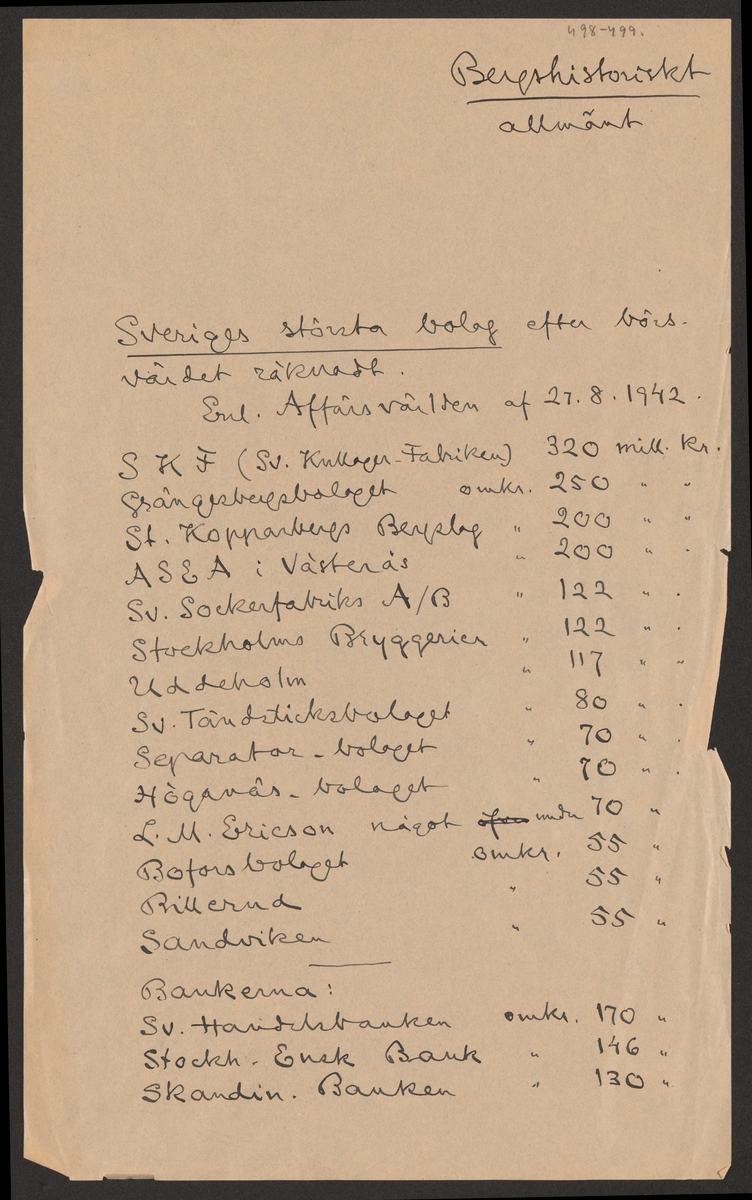 498-499.
Bergshistoriskt
allmänt
Sveriges största bolag efter börs-
värdet räknadt.
Enl. Affärsvärlden af 27.8.1942.
S K F (Sv. Kullager-Fabriken) 320 mill. kr.
Grängesbergsbolaget omkr. 250 " "
St. Kopparbergs Bergslag " 200 " "
ASEA i Västerås " 200 " "
Sv. Sockerfabriks A/B " 122 " "
Stockholms Bryggerier " 122 " "
Uddeholm " 117 " "
Sv. Tändsticksbolaget " 80 " "
Separator-bolaget " 70 " "
Höganäs-bolaget " 70 " "
L. M. Ericson något öfver under 70 "
Boforsbolaget omkr. 55 "
Billerud " 55 "
Sandviken " 55 "
Bankerna:
Sv. Handelsbanken omkr. 170 "
Stockh. Ensk Bank " 146 "
Skandin. Banken " 130 "